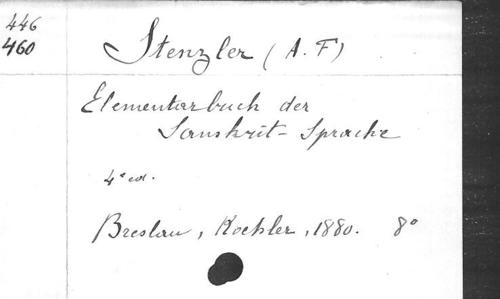 446
460
Stenzler (A. F)
Elementarbuch der
Sanskrit-Sprache
4e ed.
Breslau, Koehler, 1880. 8°